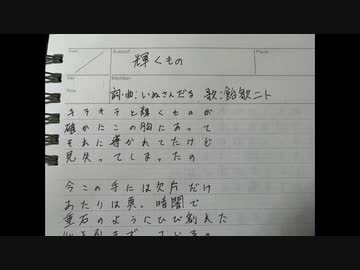 Date
Subject
Place
輝くもの
Member
詞・曲：いぬさんだる 歌：飴歌ニト
キラキラと輝くものが
確かにこの胸にあって
それに導かれてたけど
見失ってしまったの
今この手には欠片だけ
あたりは真っ暗闇で
重石のようにひび割れた